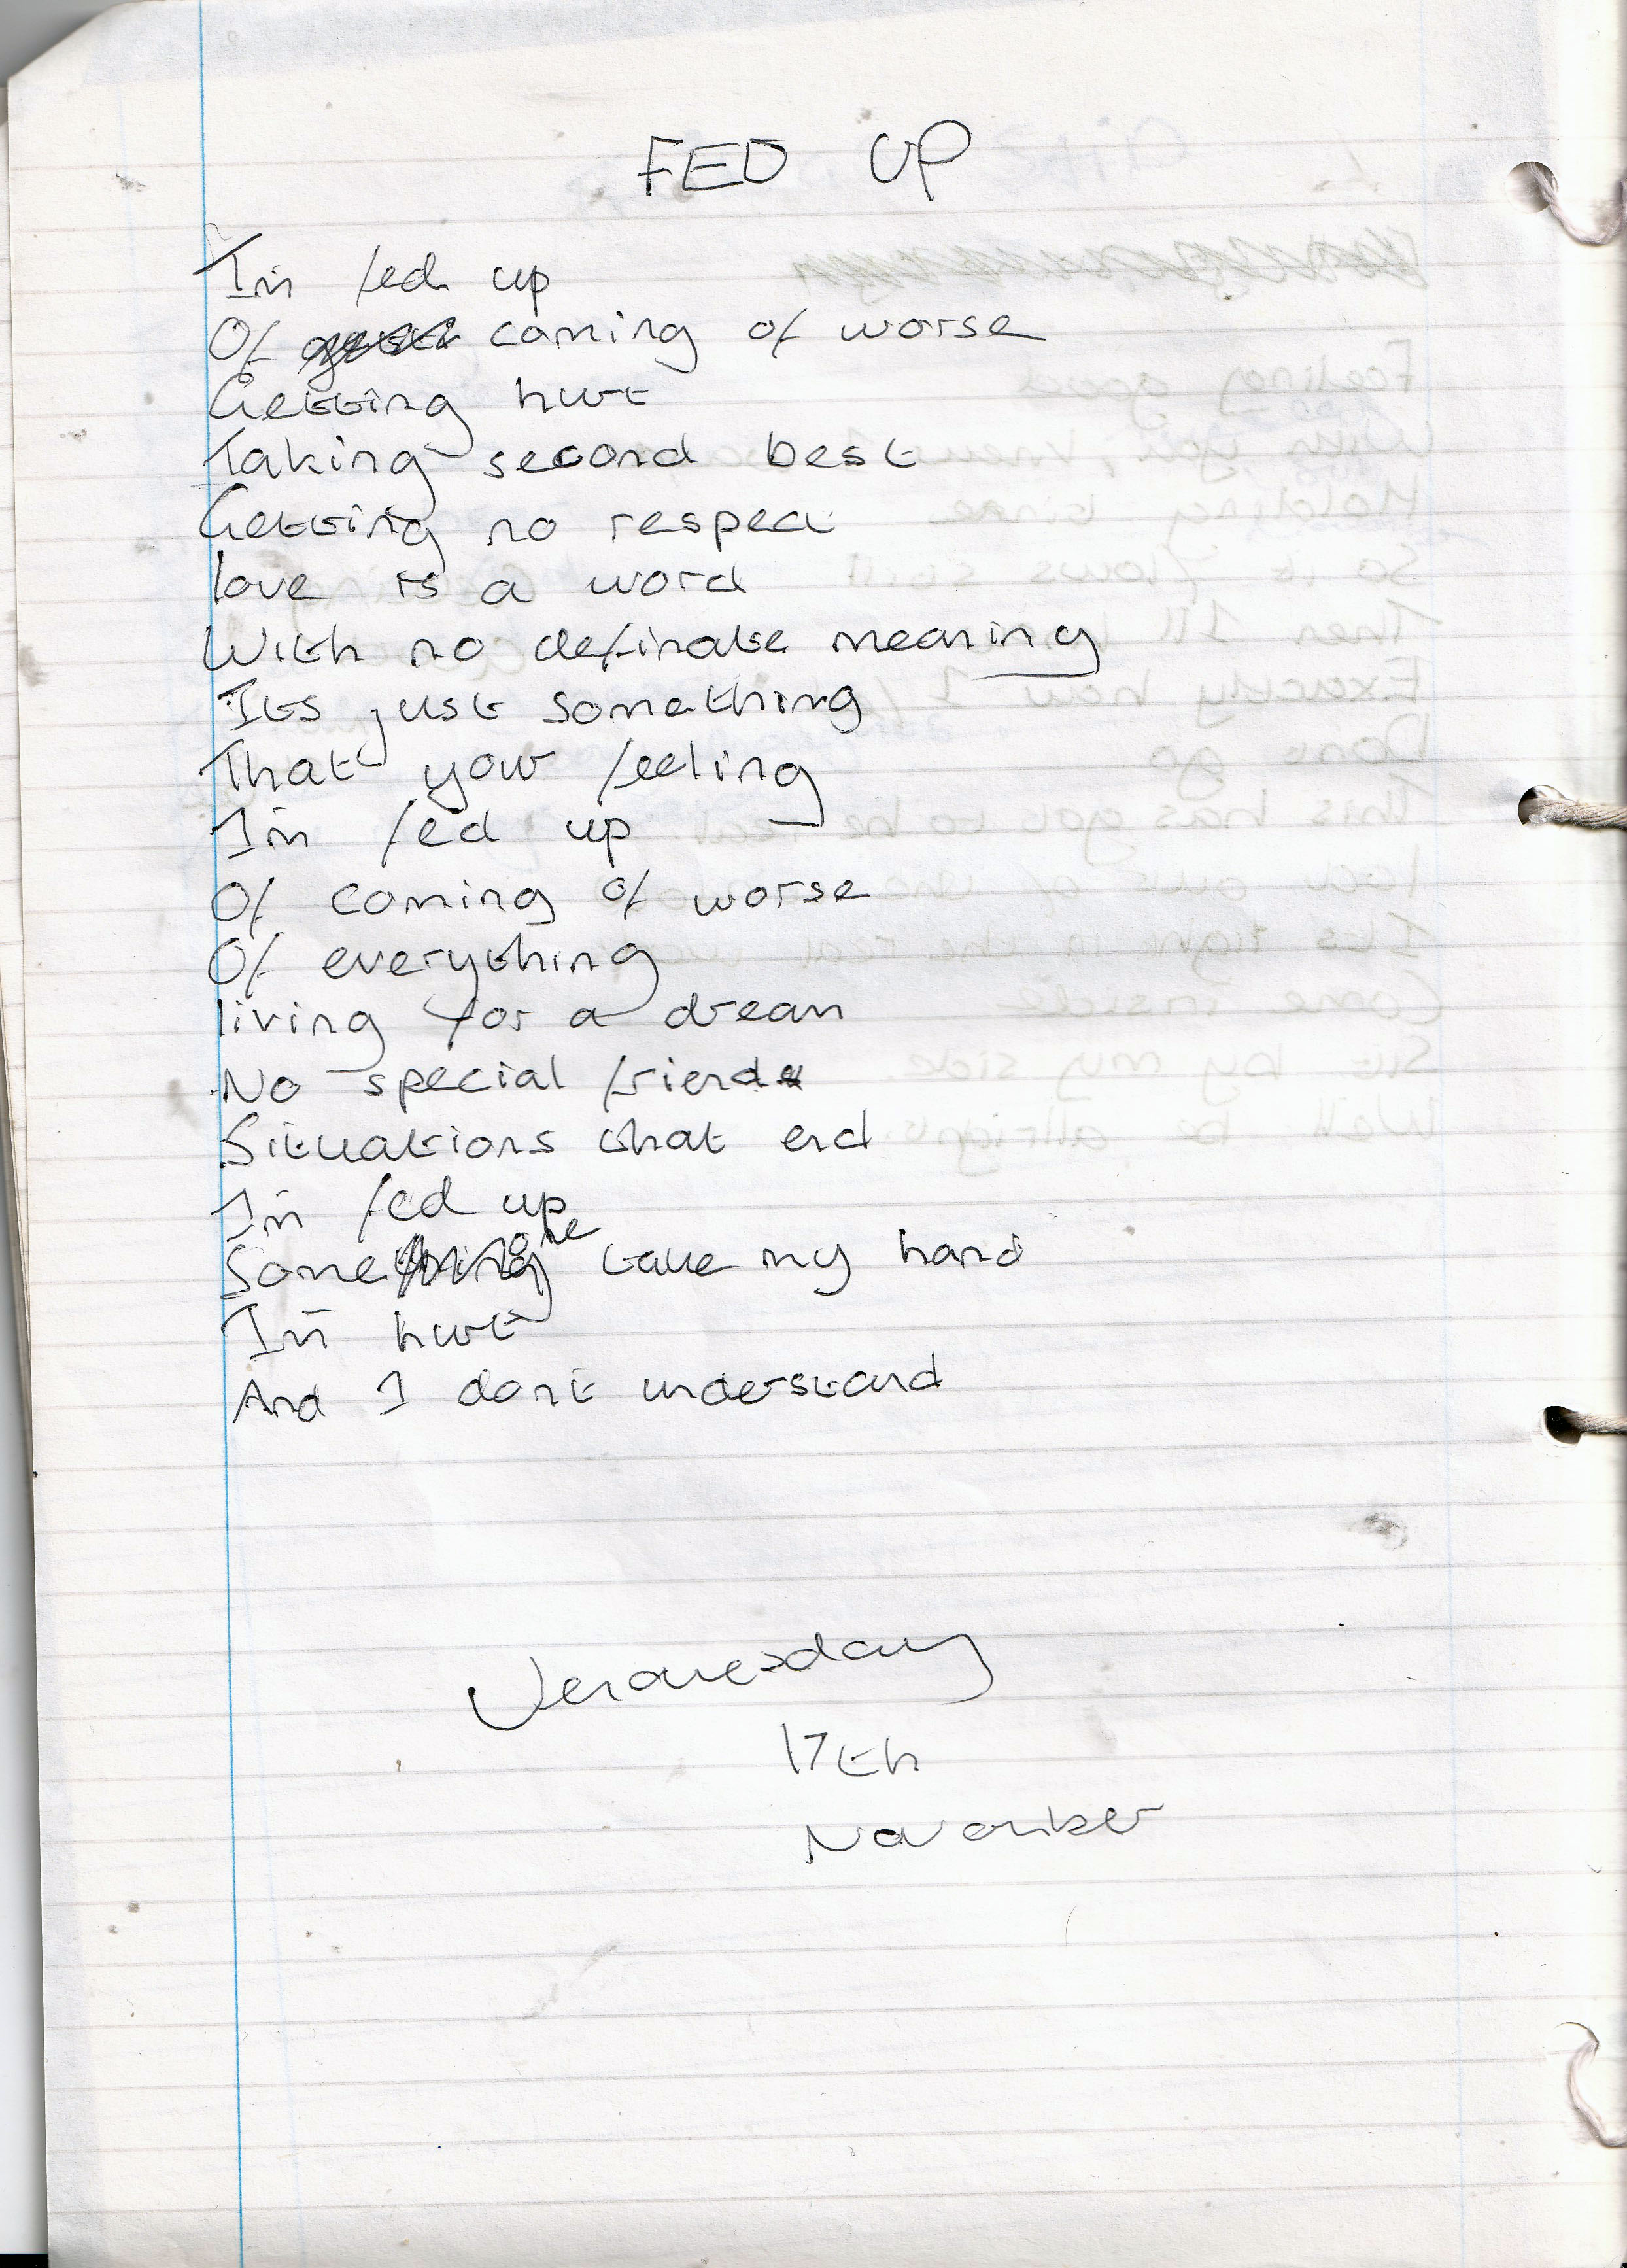 FED UP
Im fed up
Of coming of worse
Getting hurt
Taking second best
Getting no respect
love is a word
With no definate meaning
Its just something
That your feeling
Im fed up
Of coming of worse
Of everything
living for a dream
No special friend
Situations that end
Im fed up
Someone take my hand
Im hurt
And I dont understand
Wednesday
17th
November